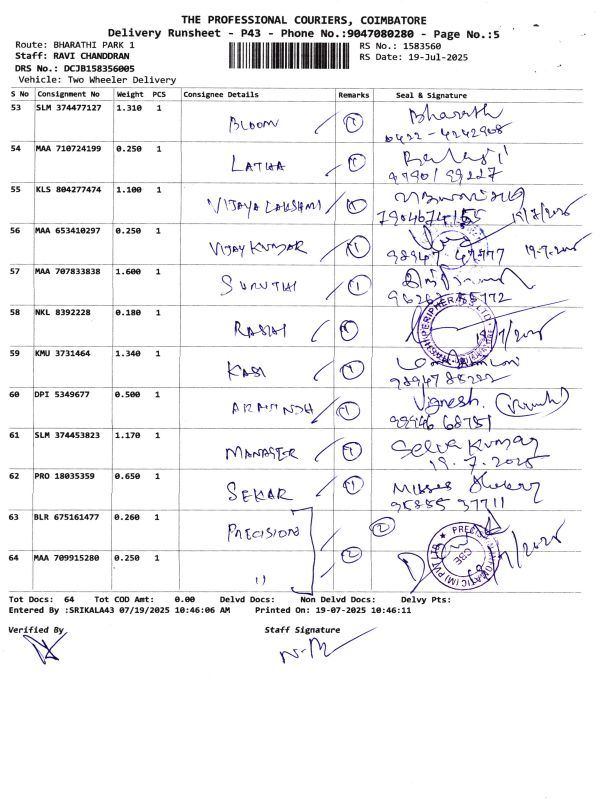 THE PROFESSIONAL COURIERS, COIMBATORE
Delivery Runsheet - P43 - Phone No.:9047080280 - Page No.:5
Route: BHARATHI PARK 1
RS No.: 1583560
Staff: RAVI CHANDDRAN
RS Date: 19-Jul-2025
DRS No.: DCJB158356005
Vehicle: Two Wheeler Delivery
S No Consignment No Weight PCS Consignee Details Remarks Seal & Signature
53 SLM 374477127 1.310 1 BLOOM 1 Bharath
0422 - 4242908
54 MAA 710724199 0.250 1 LATHA 1
55 KLS 804277474 1.100 1 VIJAYA LAKSHMI 1
7904674155 19/7/2025
56 MAA 653410297 0.250 1 VIJAY KUMAR 1
98947 - 47777 19.7.2025
57 MAA 707833838 1.600 1 SURUTHI 1
58 NKL 8392228 0.180 1 1
59 KMU 3731464 1.340 1 KASI 1
60 DPI 5349677 0.500 1 1 Vignesh.
98946 68751
61 SLM 374453823 1.170 1 MANAGER 1 Selva Kumar
19.7.2025
62 PRO 18035359 0.650 1 SEKAR 1
95855 37711
63 BLR 675161477 0.260 1 PRECISION 2
64 MAA 709915280 0.250 1 11 2
Tot Docs: 64 Tot COD Amt: 0.00 Delvd Docs: Non Delvd Docs: Delvy Pts:
Entered By :SRIKALA43 07/19/2025 10:46:06 AM Printed On: 19-07-2025 10:46:11
Verified By Staff Signature